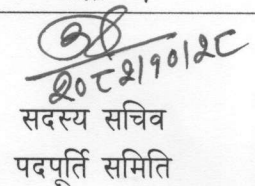 २०८२।१०।२८
सदस्य सचिव
पदपूर्ति समिति